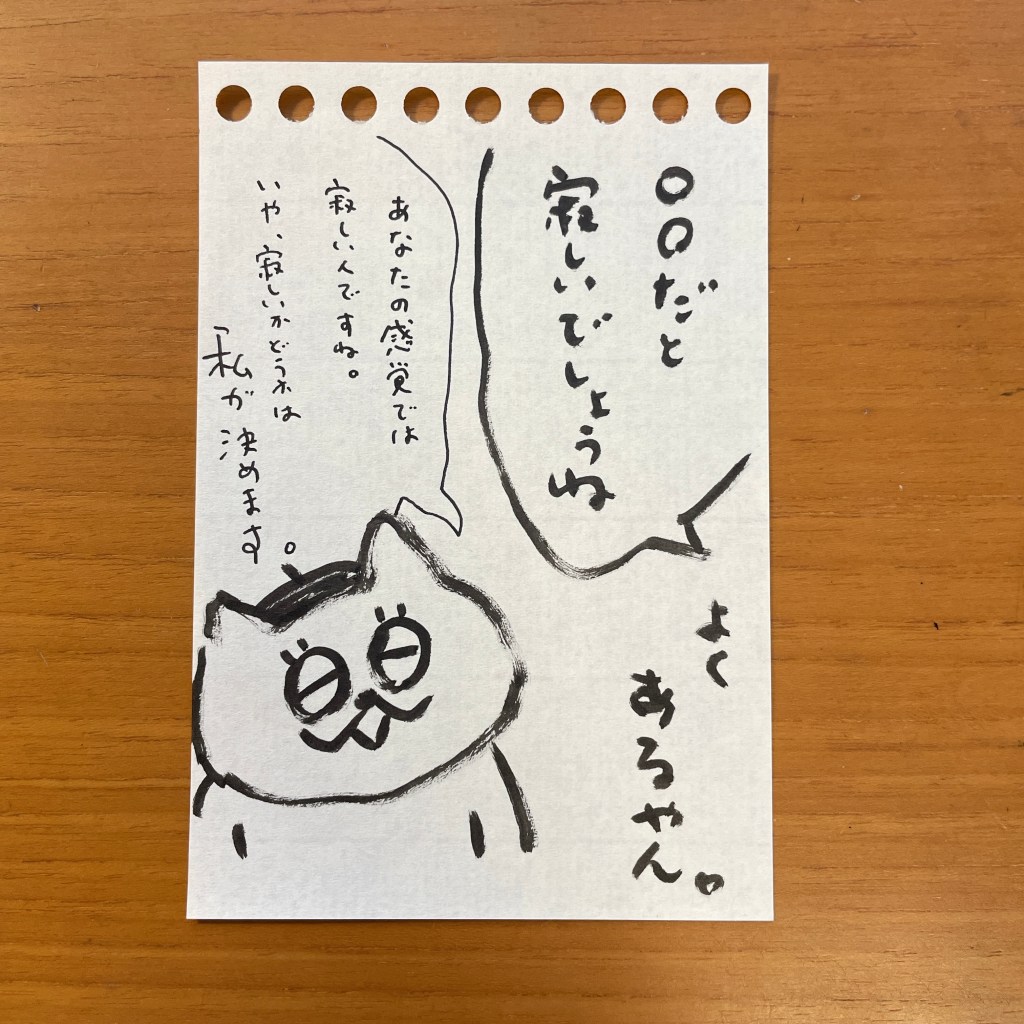 ○○だと
寂しいでしょうね
よく
あるやん。
あなたの感覚では
寂しいんですね。
いや、寂しいかどうかは
「私が決めます。